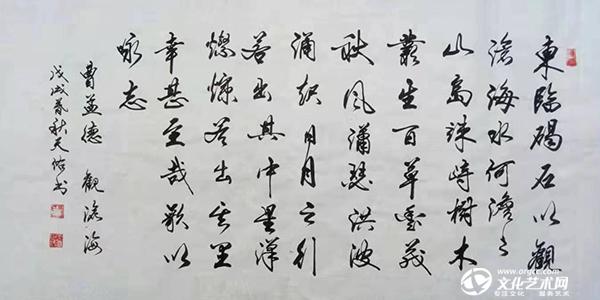 東臨碣石以觀
滄海水何澹々
山島竦峙樹木
叢生百草豐茂
秋風瀟瑟洪波
涌起日月之行
若出其中星漢
燦爛若出其里
幸甚至哉歌以
咏志
曹孟德 觀滄海
戊戌暮秋天佑书
www.orgcc.com
文化艺术网
专注文化 服务艺术